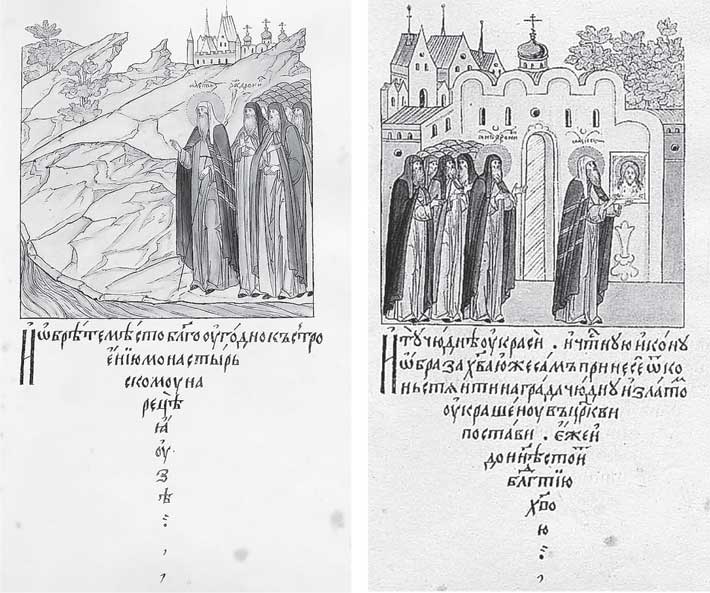 И ѡбрѣте мѣсто бл҃гоꙋгодно къ стро
енїю монастырь
скомꙋ на
рецѣ
ꙗ
оу
з
ѣ
И тꙋ чюднѣ оукраси . и чт҃нꙋю иконꙋ
ѡбраза хв҃а юже самъ принесе ѿ ко
ньстѧнтина града чюднꙋ и златѡ
оукрашенꙋ въ цр҃кви
постави . ѐже и
до нн҃ѣ стоит
бл҃гтїю
хв҃ою